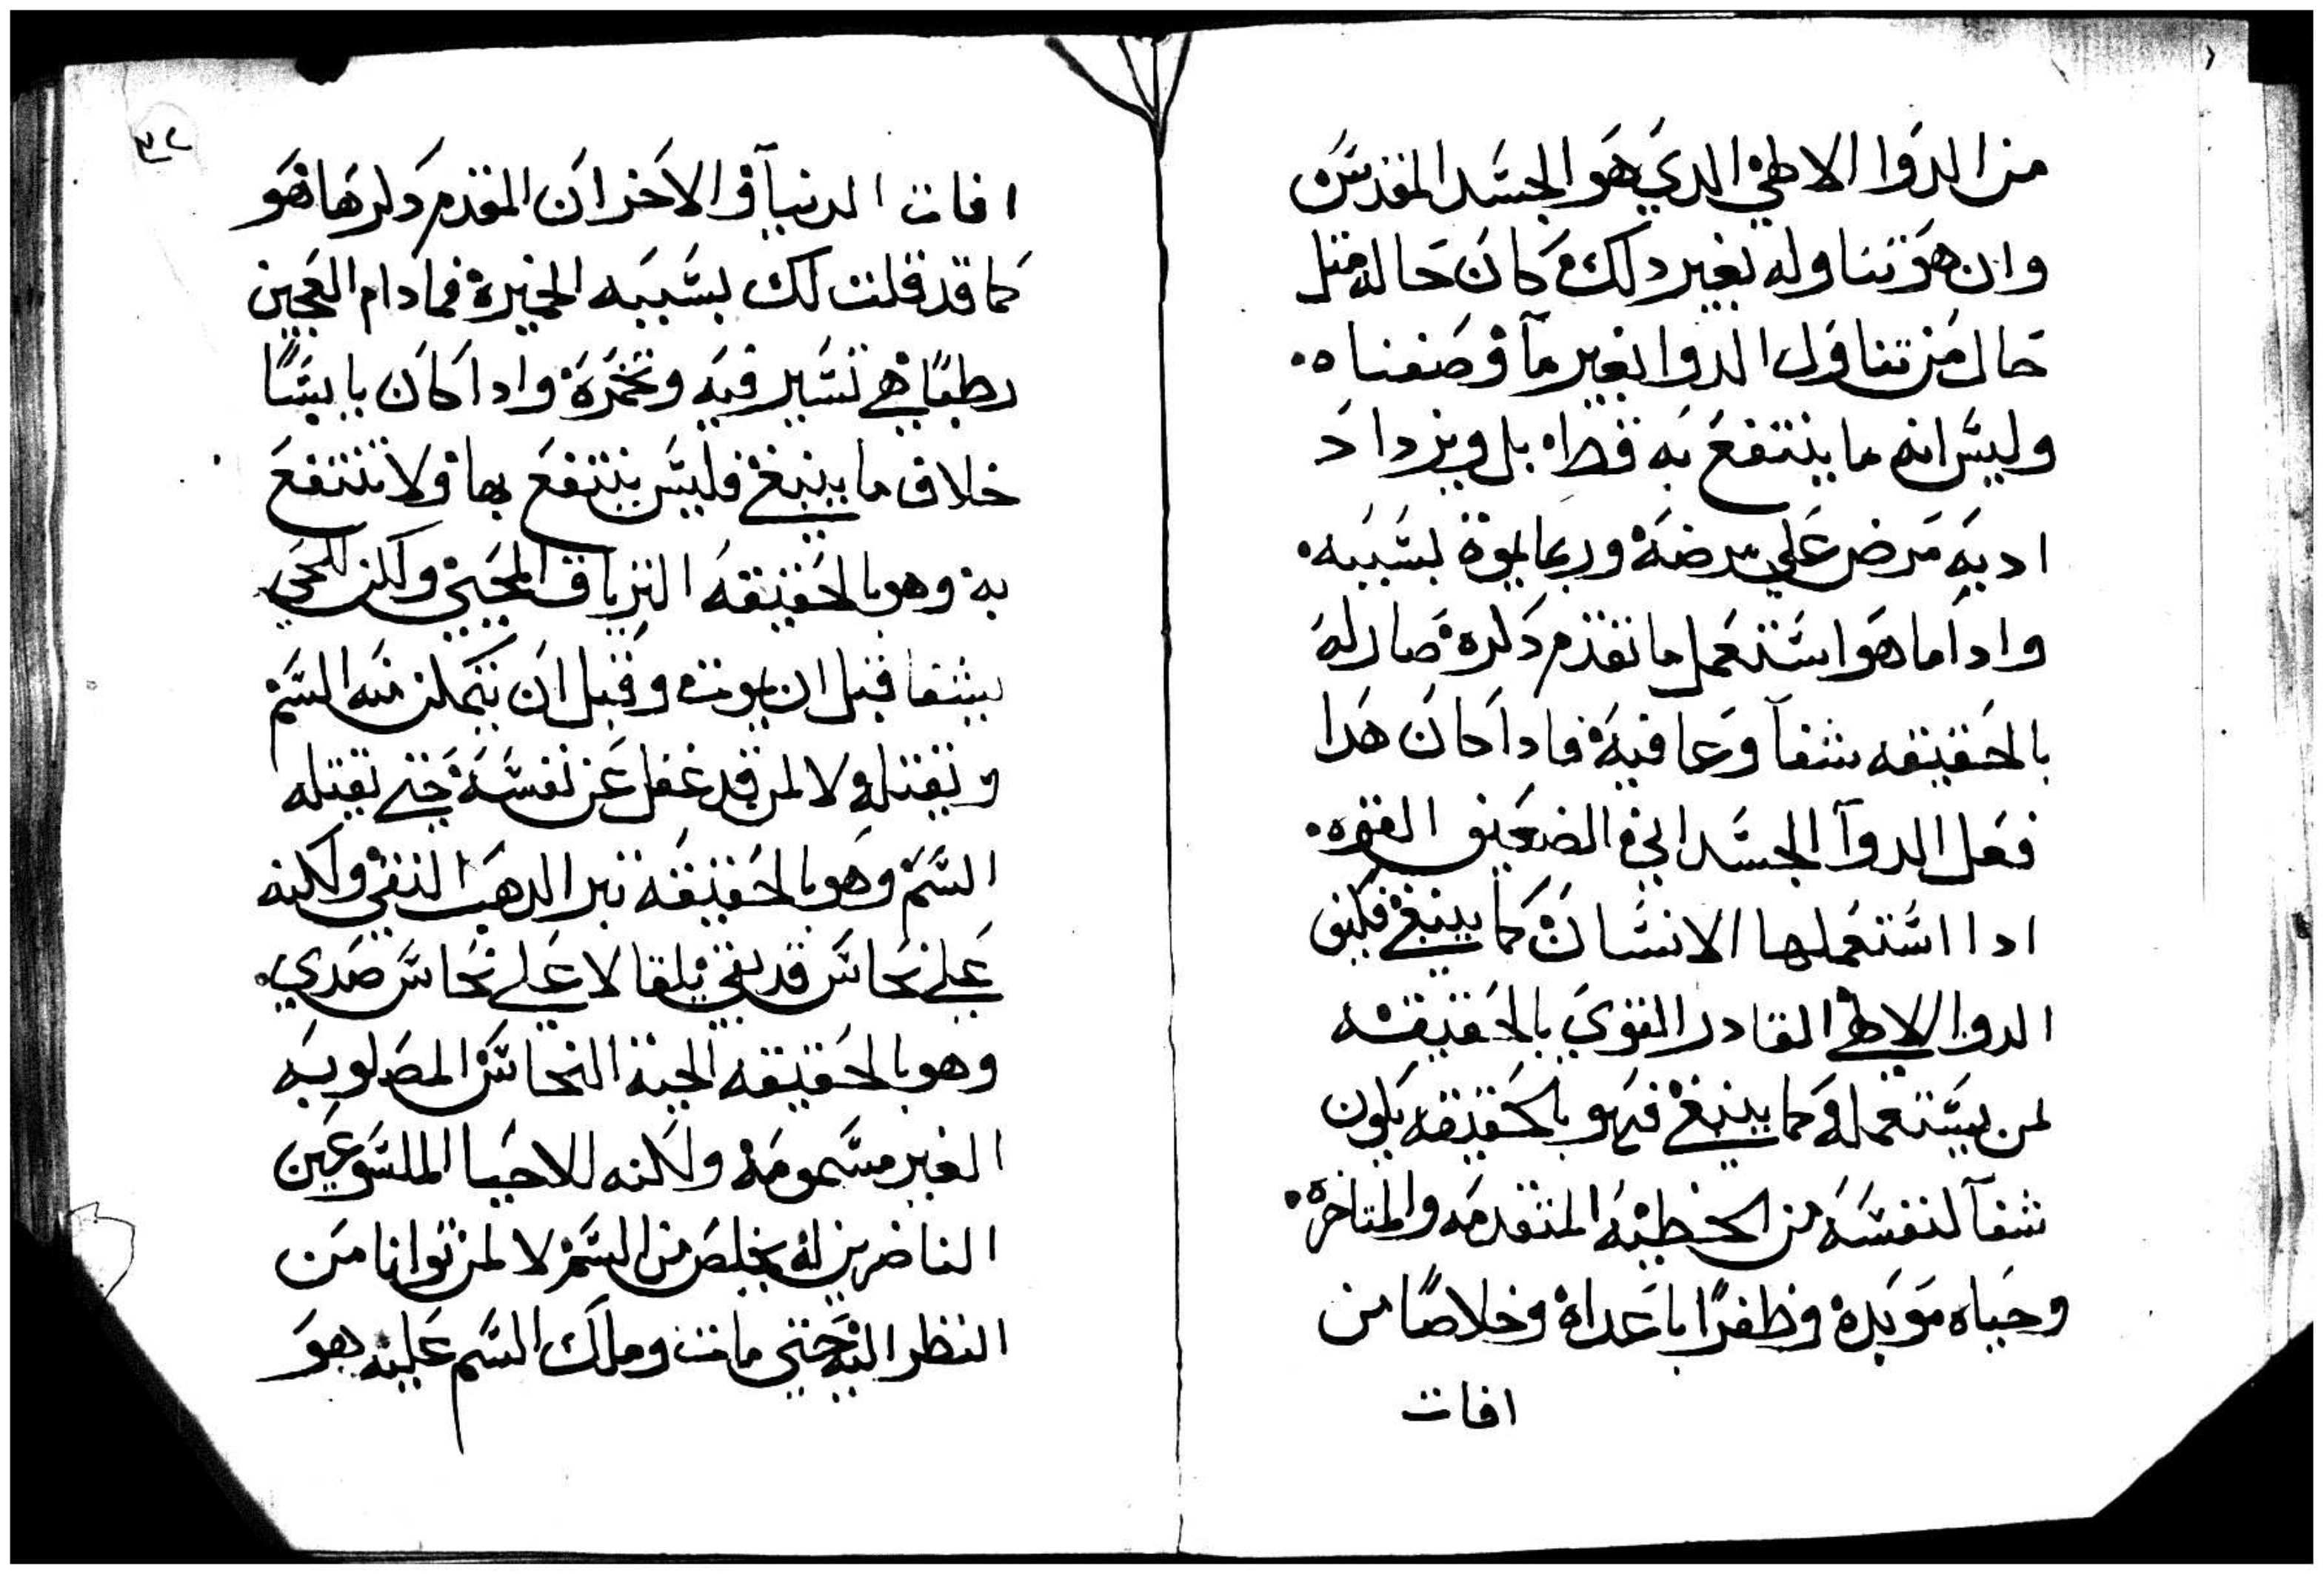 من الدوا الالاهي الدي هو الجسد المقدس
وان هو تناوله بغير دلك كان حاله مثل
حال من تناول الدوا بغير ما وصفناه
وليس انه ما ينتفع به قط بل ويزداد
اديه مرض علي مرضه وربما يموة بسببه
وادا ما هو استعمل ما تقدم دكره صار له
بالحقيقه شفآ وعافية فادا كان هدا
فعل الدوآ الجسداني الضعيف القوه
ادا استعملها الانسان كما ينبغي فكيف
الدوا الالاهي القادر القوي بالحقيقه
لمن يستعمله كما ينبغي فهو بالحقيقه يكون
شفآ لنفسه من الخطيه المتقدمه والمتاخره
وحياه موبده وظفرًا باعداه وخلاصًا من
افات
٣٢
افات الدنيا والاخر ان المقدم دكرها فهو
كما قد قلت لك بسببه الخميرة فما دام العجين
رطبًا هي تسير فيه وتخمره وادا كان يابسًا
خلاف ما ينبغي فليس ينتفع بها ولا تنتفع
به وهو بالحقيقه الترياق المحيي ولكن للحي
بيشفا قبل ان يموت وقبل ان يتمكن منه السم
ويقتله ولا لمن قد غفل عن نفسه حتي يقتله
السم وهو بالحقيقه تبر الدهب النقي ولكنه
علي نحاس قد نقي يلقا لا علي نحاس صدي
وهو بالحقيقه الحية النحاس المصلوبه
الغير مسمومه ولاكنه للاحيا الملسوعين
الناضرين له يخلص من السم لا لمن توانا من
النظر اليه حتي مات وملك السم عليه هو